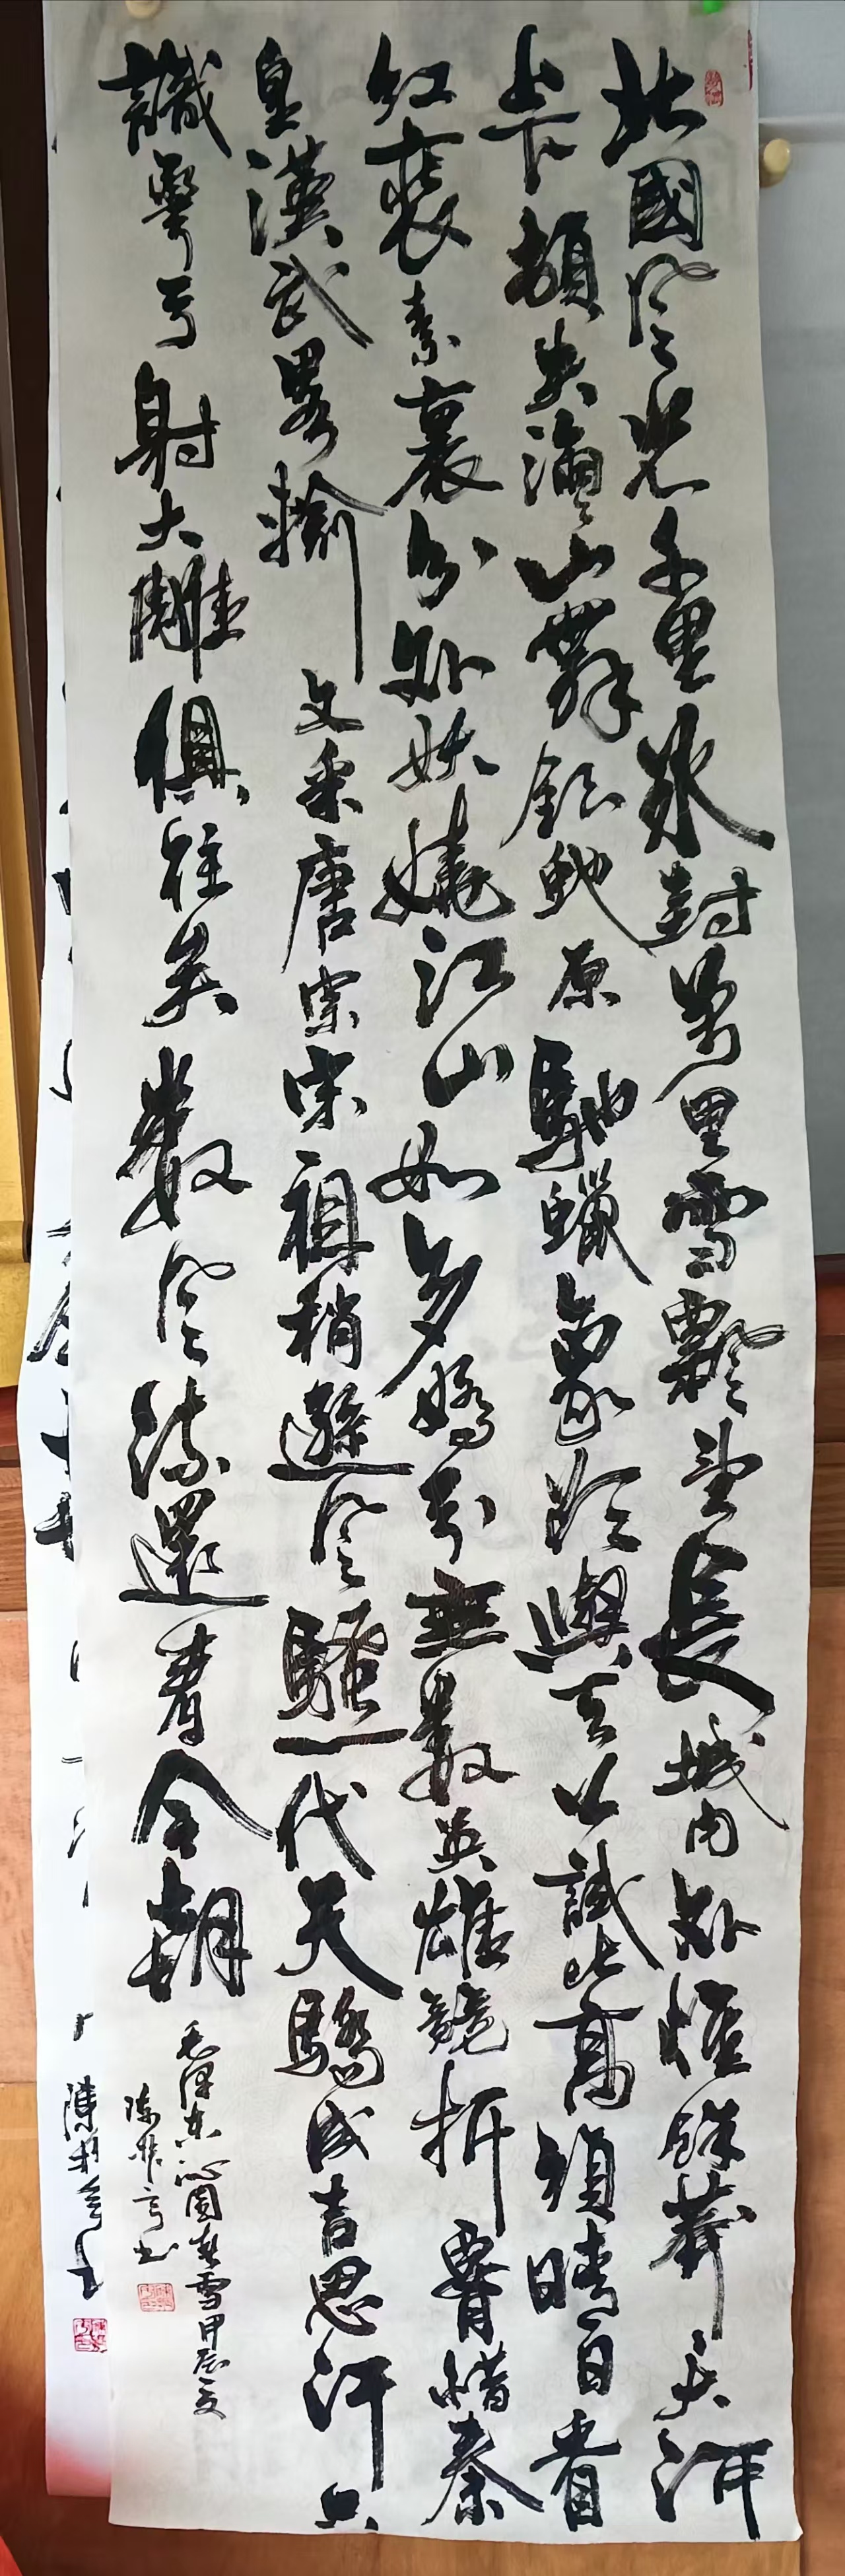 北國風光千里冰封萬里雪飄望長城內外惟餘莽大河
上下頓失滔山舞銀蛇原馳蠟象欲與天公試比高須晴日看
紅裝素裹分外妖嬈江山如多嬌引無數英雄競折腰惜秦
皇漢武畧輸文采唐宗宋祖稍遜風騷一代天驕成吉思汗只
識彎弓射大雕俱往矣數風流還看今朝
毛澤东沁園春雪甲辰夏